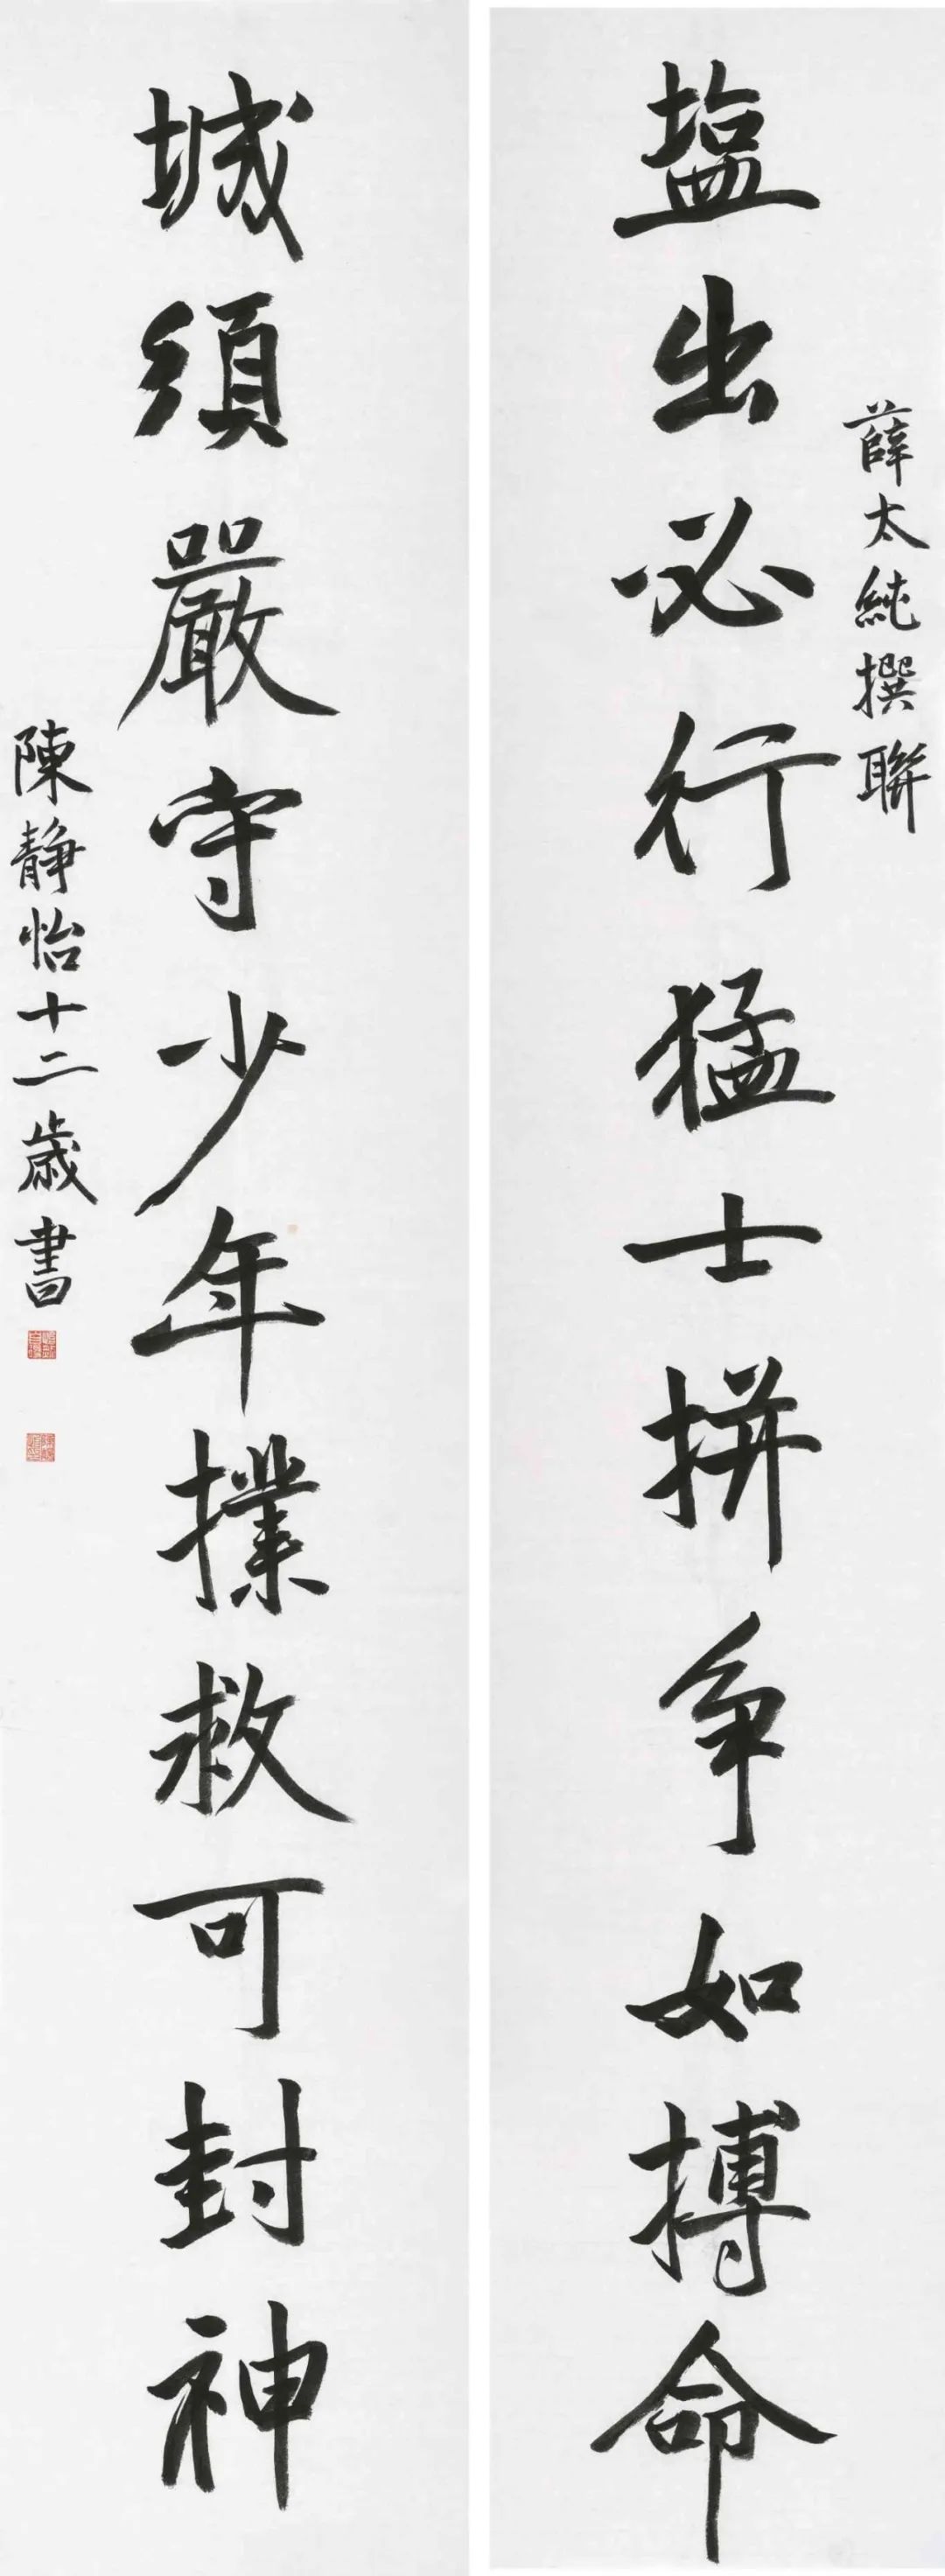 薛太純撰聯
塩出必行猛士拼争如搏命
城須嚴守少年撲救可封神
陳靜怡十二歲書